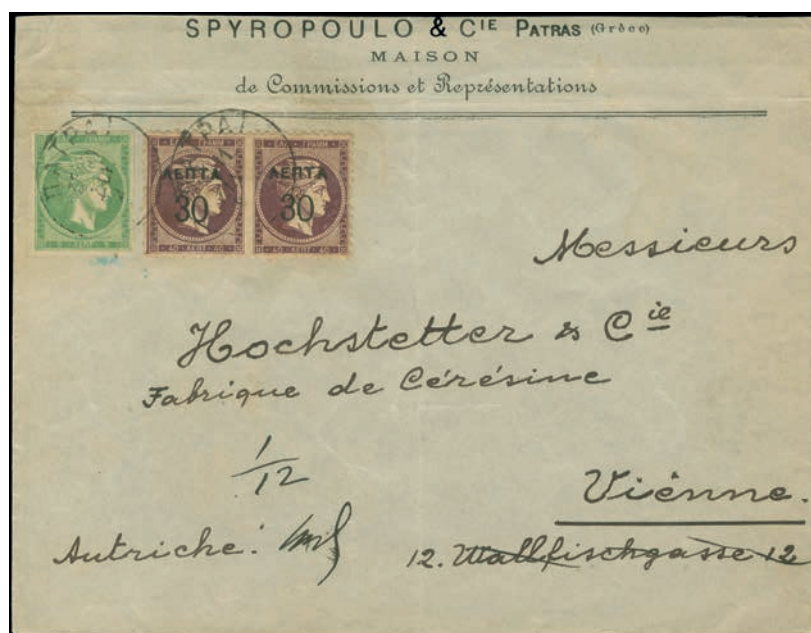 SPYROPOULO & CIE PATRAS (Grèce)
MAISON
de Commissions et Représentations
ΠΑΤΡΑΙ
ΠΑΤΡΑΙ
ΛΕΠΤΑ 30
ΛΕΠΤΑ 30
40 ΛΕΠΤ 40
40 ΛΕΠΤ 40
Messieurs
Hochstetter & Cie
Fabrique de Cérésine
1/12
Viénne.
Autriche.
12. Wallfischgasse 12